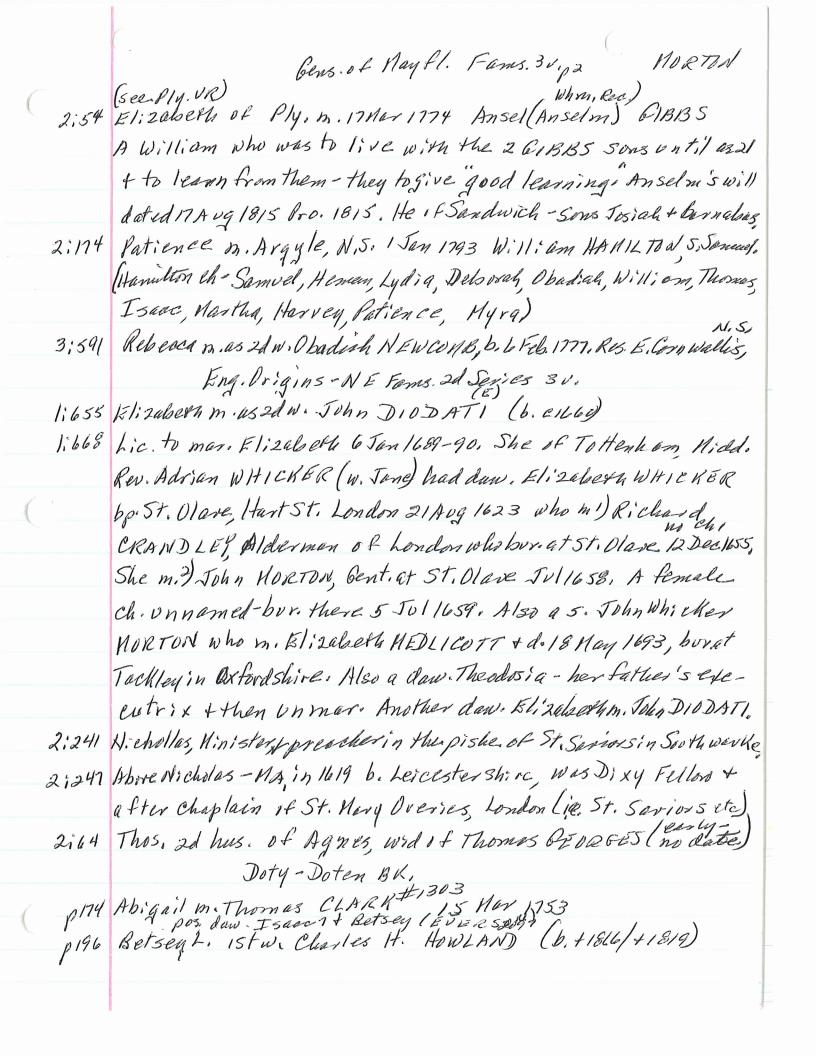 Gens. of Mayfl. Fams. 3v. p2 MORTON
(see Ply. VR) Whm, Rec)
2:54 Elizabeth of Ply. m. 17 Mar 1774 Ansel (Anselm) GIBBS
A William who was to live with the 2 GIBBS sons until as 21
+ to learn from them - they to give "good learning." Anselm's will
dated 17 Aug 1815 Pro. 1815. He of Sandwich - Sons Josiah + Barnabas,
2:174 Patience m. Argyle, N.S. 1 Jan 1793 William HAMILTON, S. Samuel.
(Hamilton ch - Samuel, Heman, Lydia, Deborah, Obadiah, William, Thomas,
Isaac, Martha, Harvey, Patience, Myra)
N.S.
3:591 Rebecca m. as 2d w. Obadiah NEWCOMB, b. 6 Feb. 1777. Res. E. Cornwallis,
Eng. Origins - NE Fams. 2d Series 3v.
(E)
1:655 Elizabeth m. as 2d w. John DIODATI (b. c1660)
1:668 Lic. to mar. Elizabeth 6 Jan 1689-90. She of Tottenham, Midd.
Rev. Adrian WHICKER (w. Jane) had daw. Elizabeth WHICKER
bp. St. Olave, Hart St. London 21 Aug 1623 who m 1) Richard
no ch,
CRANDLEY, Alderman of London who bur. at St. Olave 12 Dec 1655,
She m. 2) John MORTON, Gent. at St. Olave Jul 1658. A female
ch. unnamed - bur. there 5 Jul 1659. Also a s. John Whicker
MORTON who m. Elizabeth MEDLICOTT + d. 18 May 1693, bur at
Tackley in Oxfordshire. Also a daw. Theodosia - her father's exe-
cutrix + then unmar. Another daw. Elizabeth m. John DIODATI.
2:241 Nichollas, Minister + preacher in the pishe of St. Saviors in Southwarke.
2:247 Above Nicholas - MA, in 1619 b. Leicestershire, was Dixy Fellow +
after chaplain of St. Mary Overies, London (i.e. St. Saviors etc)
2:64 Thos. 2d hus. of Agnes, wid of Thomas GEORGES (early - no date)
Doty-Doten BK.
p174 Abigail m. Thomas CLARK #1303 15 Mar 1753
pos. daw. Isaac + Betsey
p196 Betsey L. 1st w. Charles H. HOWLAND (b. +1816/+1819)